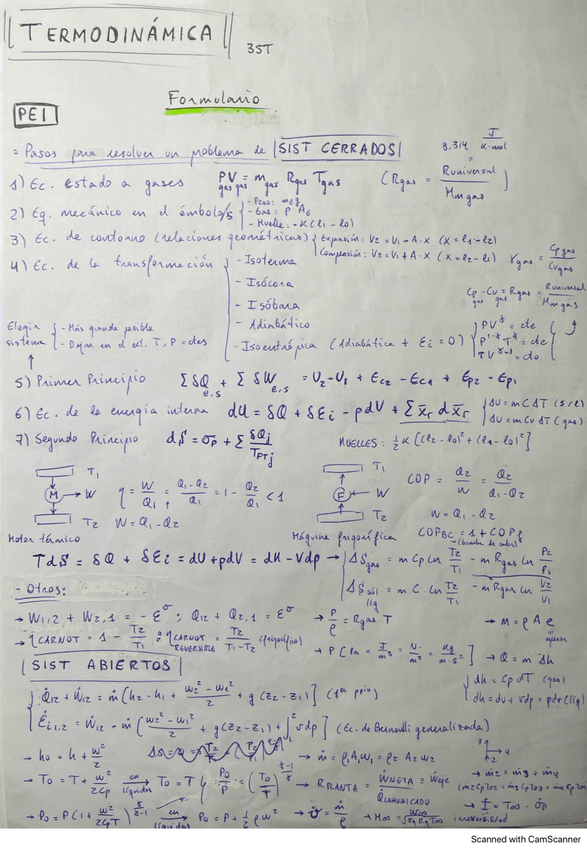 TERMODINÁMICA 3ST
Formulario
PE1
• Pasos para resolver un problema de SIST CERRADOS
8,314 J/K·mol
1) Ec. estado a gases PV = m gas R gas T gas (Rgas = Runiversal / Mm gas)
2) Eq. mecánico en el émbolo/s { - Peso: m e g
- Gas: P A
- Muelle: -K (l1 - l0)
3) Ec. de contorno (relaciones geométricas) { Expansión: V2 = V1 - A·x (x = l1 - l2)
Compresión: V2 = V1 + A·x (x = l2 - l1)
γgas = Cp gas / Cv gas
4) Ec. de la transformación { - Isoterma
- Isócora
- Isóbara
- Adiabático
- Isoentrópica (Adiabática + Ei = 0) { PV^γ = cte
P^1-γ T^γ = cte
TV^γ-1 = cte
Cp - Cv = Rgas = Runiversal / Mm gas
Elegir sistema { - Más grande posible
- Dejar en el ext. T, P = ctes
5) Primer Principio Σ δQ e,s + Σ δW e,s = U2 - U1 + Ec2 - Ec1 + Ep2 - Ep1
6) Ec. de la energía interna dU = δQ + δEi - pdV + Σ x̄r dx̄r { ΔU = m C ΔT (s/l)
ΔU = m Cv ΔT (gas)
7) Segundo Principio dS = σp + Σ δQj / TFTj
MUELLES: 1/2 K [(l2 - l0)² + (l1 - l0)²]
T1
M → W
T2
η = W/Q1 = Q1 - Q2 / Q1 = 1 - Q2/Q1 < 1
W = Q1 - Q2
T1
F ← W
T2
COP = Q2/W = Q2 / Q1 - Q2
W = Q1 - Q2
Motor térmico
Máquina frigorífica
COP BC = 1 + COP f
(bomba de calor)
TdS = δQ + δEi = dU + pdV = dH - Vdp → { ΔS gas = m Cp Ln T2/T1 - m Rgas Ln P2/P1
ΔS sol líq = m·C·Ln T2/T1 - m Rgas Ln V2/V1
- Otros:
→ W1,2 + W2,1 = - E^σ ; Q12 + Q2,1 = E^σ
→ P/ρ = Rgas T
→ m = ρ A e
→ ηCARNOT = 1 - T2/T1 ; ηCARNOT REVERSIBLE = T2 / T1 - T2 (frigorífico)
→ P [Pa = J/m³ = N/m² = kg/m·s²]
→ Q = m Δh
SIST ABIERTOS
{ Q̇12 + Ẇ12 = ṁ [h2 - h1 + w2² - w1² / 2 + g (z2 - z1)] (1er ppio)
{ dh = Cp dT (gas)
dh = du + vdp = (líq)
Ėi1,2 = Ẇ12 - ṁ (w2² - w1² / 2 + g(z2 - z1) + ∫ vdp) (Ec. de Bernoulli generalizada)
→ h0 = h + w²/2
→ ṁ = ρ1 A1 w1 = ρ2 A2 w2
→ T0 = T + w²/2Cp en líquidos → T0 = T
P0/P = (T0/T)^γ/γ-1
→ RPLANTA = ẆNETA / Q̇COMUNICADO = Ẇeje
→ ṁ2 = ṁ3 + ṁ4
→ P0 = P (1 + w²/2CpT)^γ/γ-1 en líquidos → P0 = P + 1/2 ρ w²
→ v̇ = ṁ/ρ
→ İ = T00 · σ̇p
irreversibilidad
Scanned with CamScanner